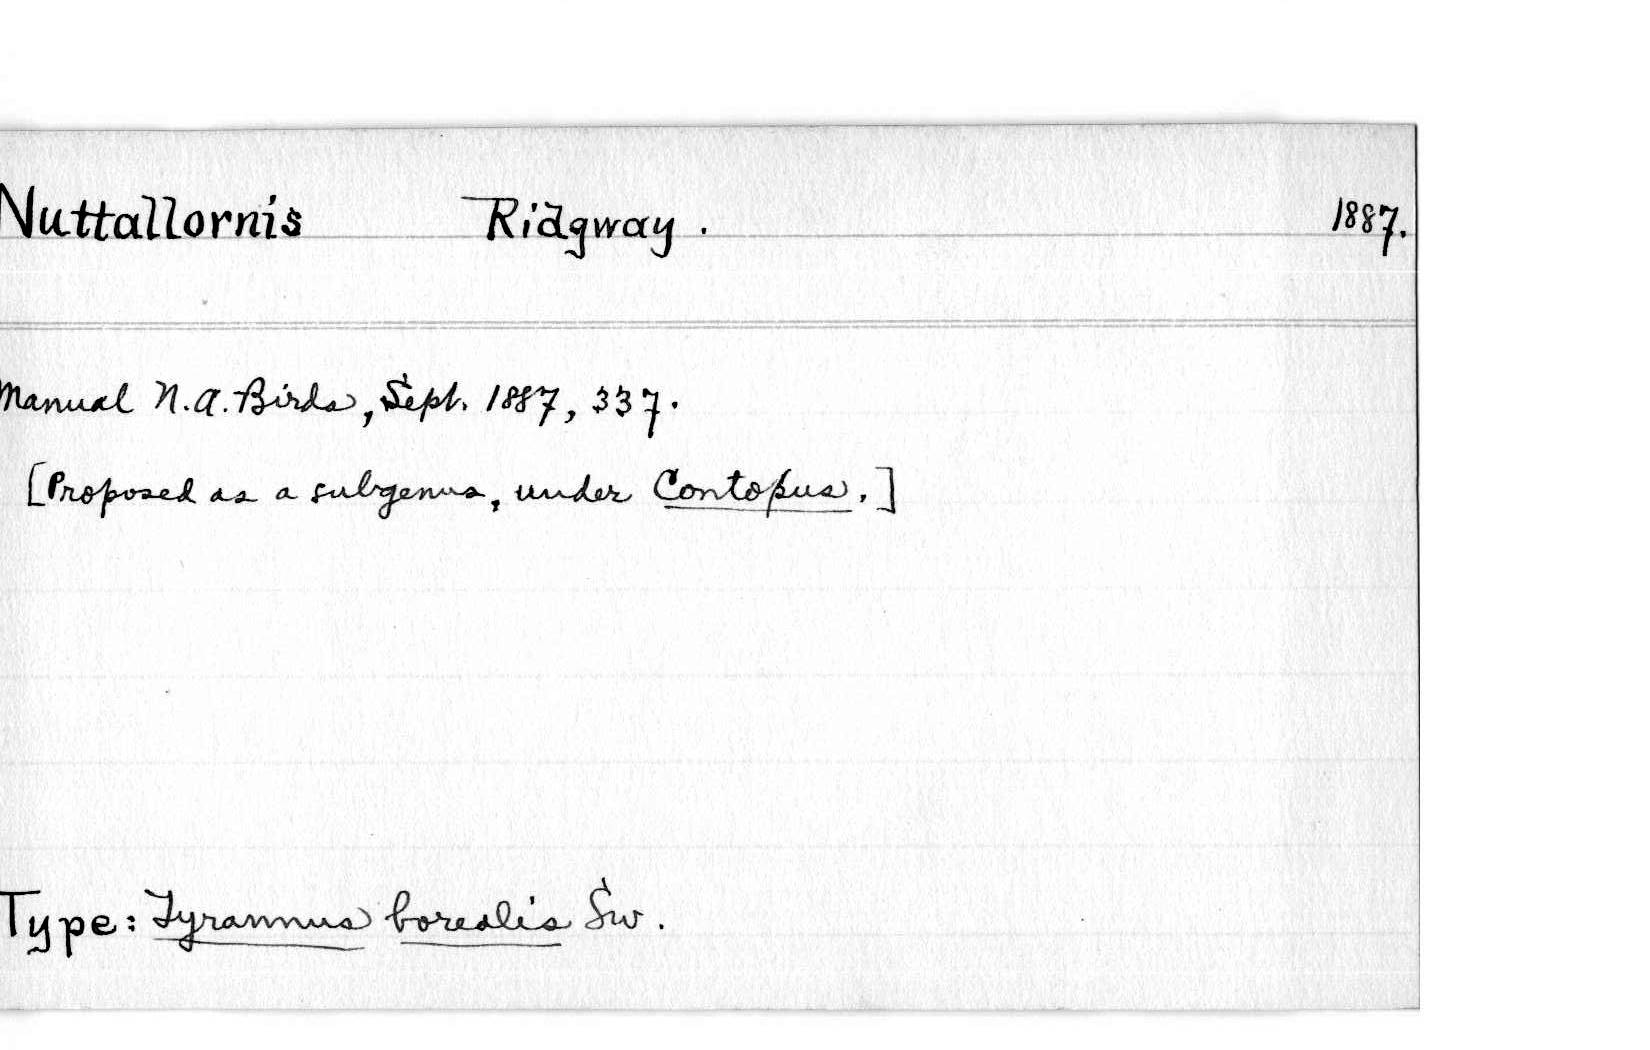 Nuttallornis Ridgway. 1887.
Manual N.A. Birds, Sept. 1887, 337.
[Proposed as a subgenus, under Contopus.]
Type: Tyrannus borealis Sw.